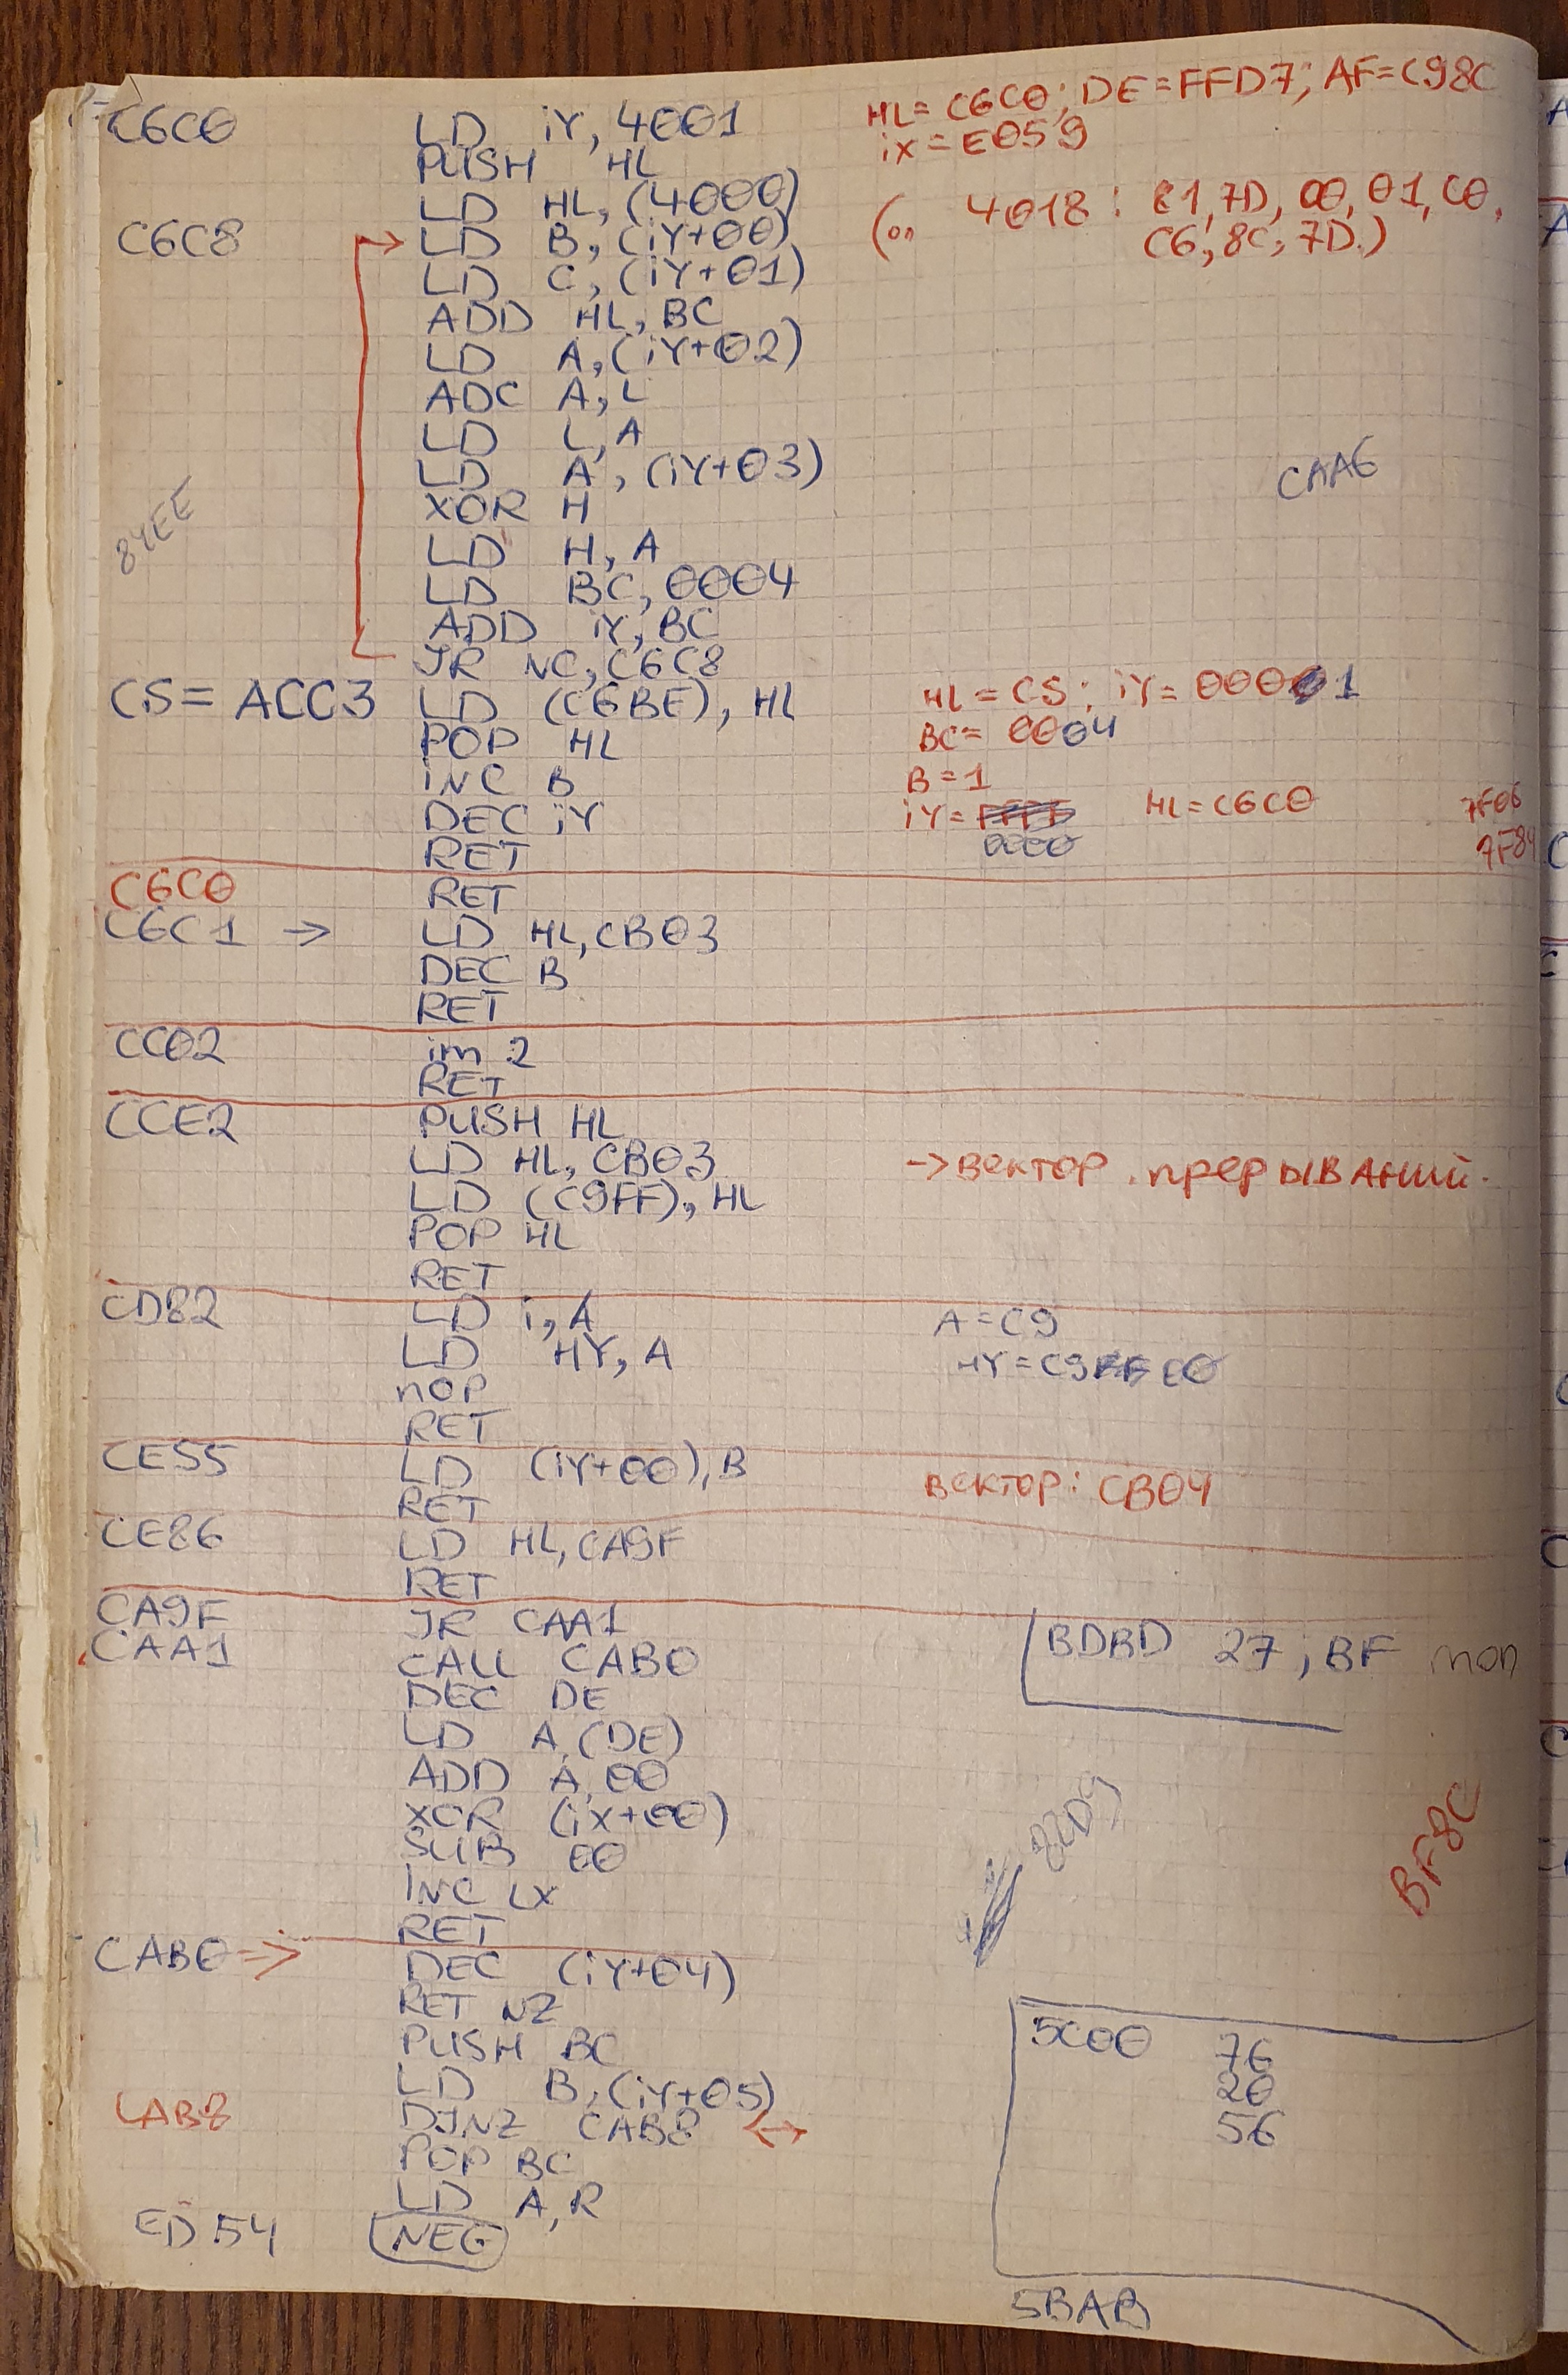 C6C0 LD iY, 4001 HL=C6C0; DE=FFD7; AF=C98C
PUSH HL iX=E059
LD HL, (4000) (on 4018: E1, 7D, 00, 01, C0,
C6C8 LD B, (iY+00) C6, 8C, 7D.)
LD C, (iY+01)
ADD HL, BC
LD A, (iY+02)
ADC A, L
LD L, A
LD A, (iY+03) CAA6
XOR H
84EE LD H, A
LD BC, 0004
ADD iY, BC
JR NC, C6C8
CS= ACC3 LD (C6BE), HL HL=CS; iY= 0001
POP HL BC= 0004
INC B B=1
DEC iY iY= 0000 HL=C6C0 7F06
RET 7F84
C6C0 RET
C6C1 → LD HL, CB03
DEC B
RET
CC02 im 2
RET
CCE2 PUSH HL
LD HL, CB03 → вектор прерываний.
LD (C9FF), HL
POP HL
RET
CD82 LD i, A A=C9
LD HY, A HY=C9 00
nop
RET
CE55 LD (iY+00), B вектор: CB04
RET
CE86 LD HL, CA9F
RET
CA9F JR CAA1
CAA1 CALL CAB0 BDBD 27, BF mon
DEC DE
LD A, (DE)
ADD A, 00
XOR (iX+00) 82D9
SUB 00 BF8C
INC LX
RET
CAB0 → DEC (iY+04)
RET NZ
PUSH BC 5C00 76
LD B, (iY+05) 20
CAB8 DJNZ CAB8 ↔ 56
POP BC
LD A, R
ED54 NEG
5BAB